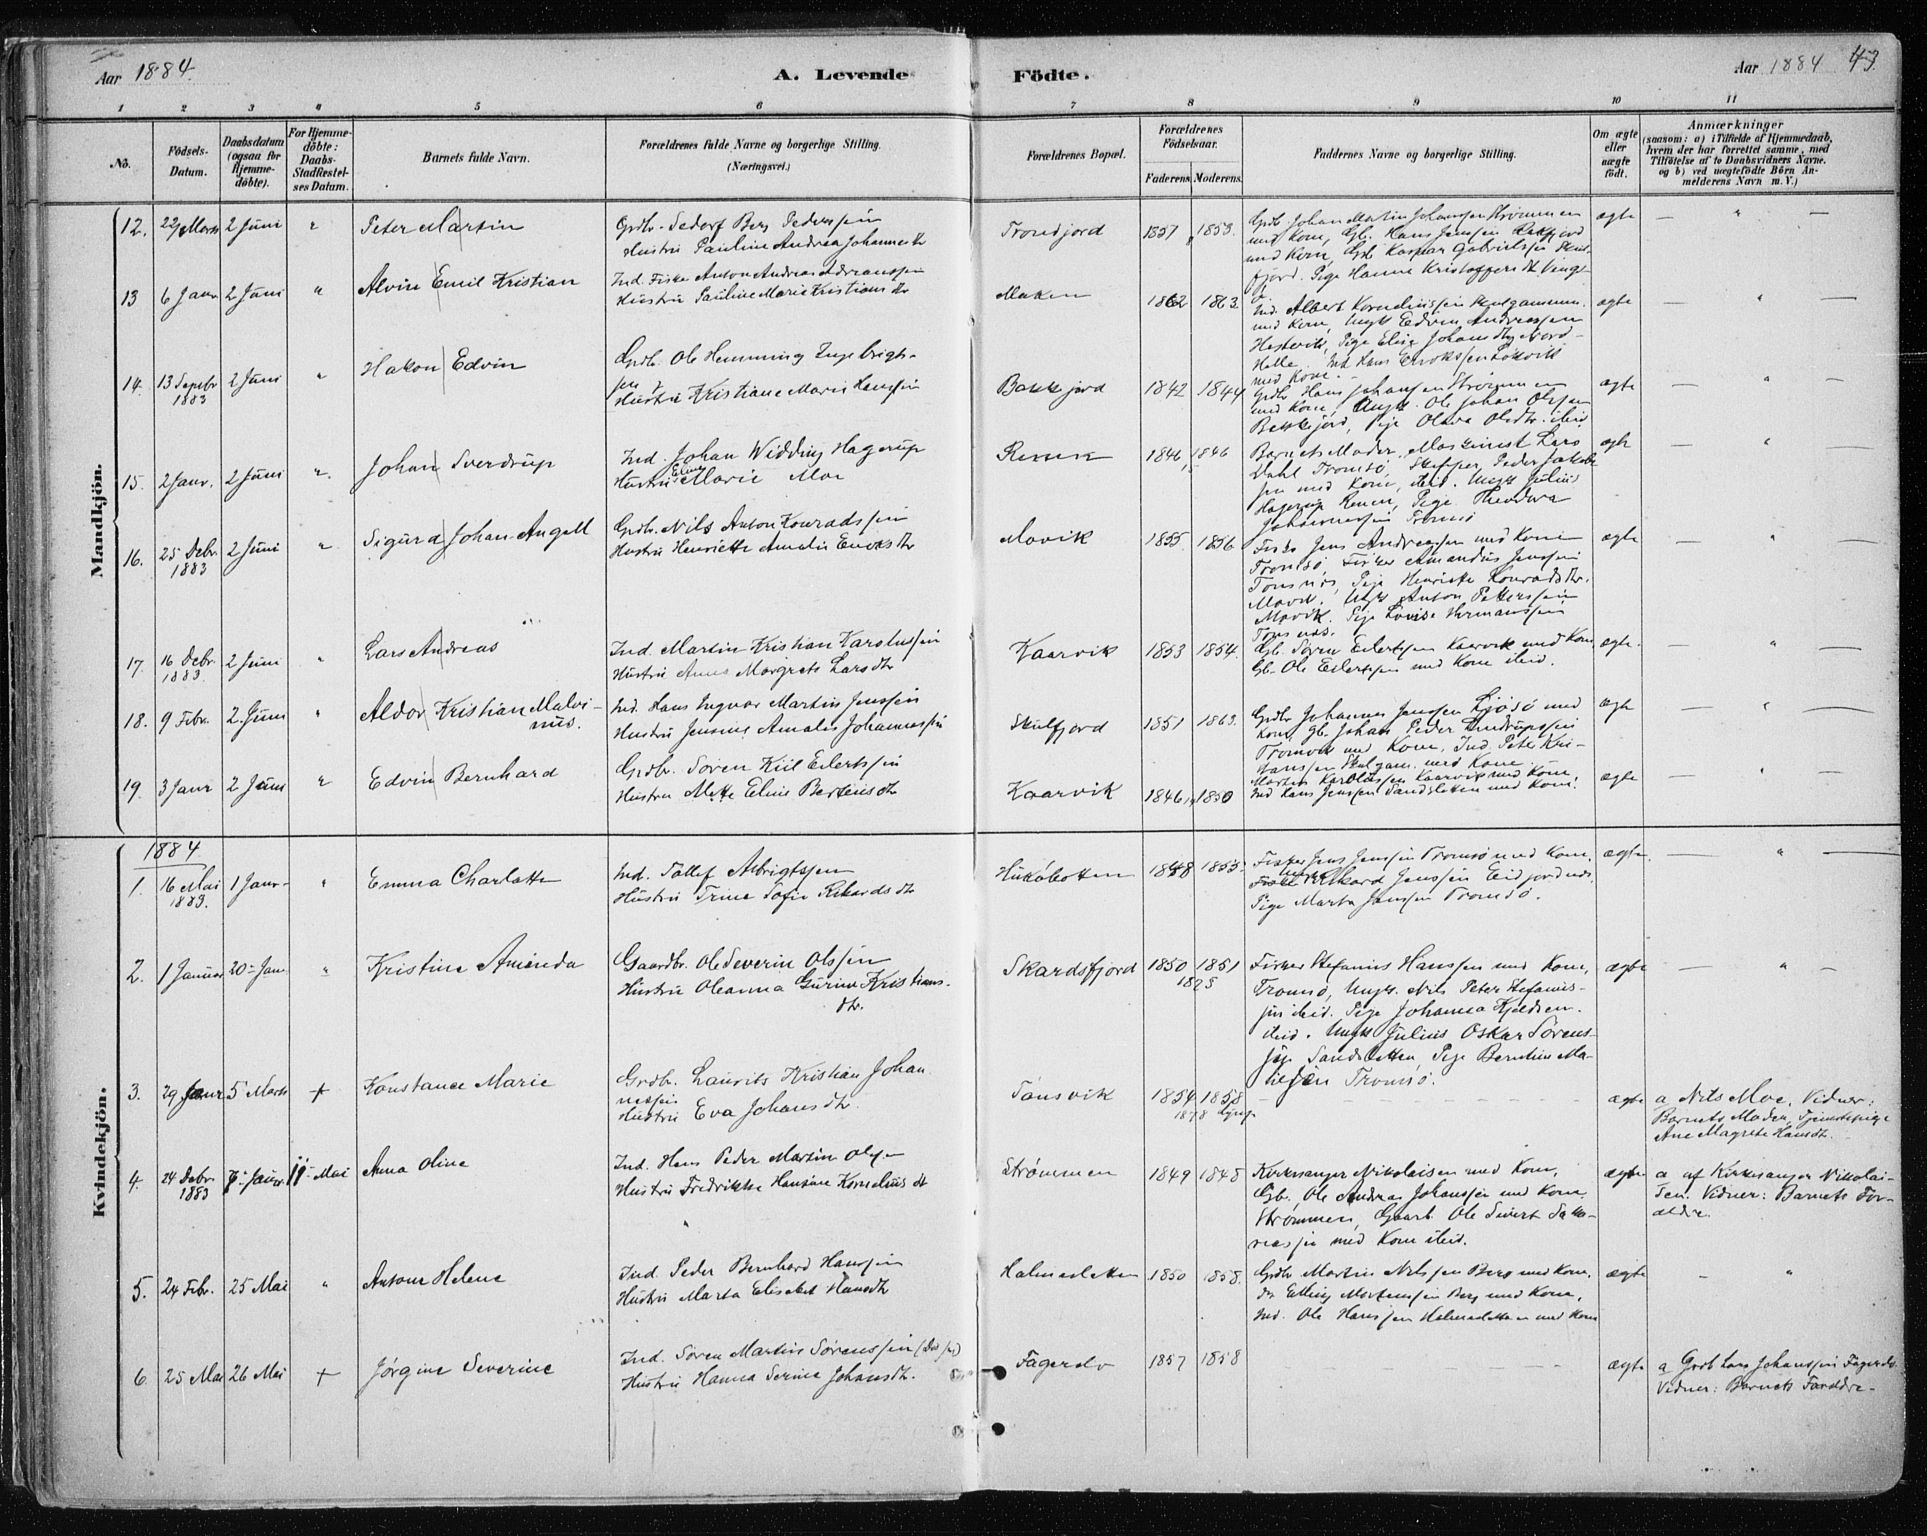 Aar 1884.
A. Levende
Födte.
Aar 1884
43.
1 2 3 4 5 6 7 8 9 10 11
No.
Födsels-Datum.
Daabsdatum (ogsaa för Hjemme-döbte).
For Hjemme-döbte: Daabs-Stadfæstel-ses Datum.
Barnets fulde Navn.
Forældrenes fulde Navne og borgerlige Stilling.
(Næringsvei.)
Forældrenes Bopæl.
Forældrenes Födselsaar.
Faderens. Moderens.
Faddernes Navne og borgerlige Stilling.
Om ægte eller uægte födt.
Anmærkninger
(saasom: a) i Tilfælde af Hjemmedaab, hvem der har forrettet samme, med Tilföielse af to Daabsvidners Navne. og b) ved uægtefödte Börn An-melderens Navn m. V.)
Mandkjön.
12. 22 Marts 2 Juni " Peter Martin
Hustru Pauline Andrea Johannesdtr
1857 1853.
Grdb. Johan Martin Johansen Strømmen
med Kone, Gb. Hans Jensen
med Kone, Gb. Kaspar Gabrielsen
fjord. Pige Hanna Kristoffersdt
ægte — " —
13 6 Janr. 2 Juni " Alvin Emil Kristian
Ind. Fisker Anton Andreas
Hustru Pauline Marie Kristiansdtr
1862 1863.
Ind. Albert Korneliussen Skulgammen.
med Kone, Ungk. Edvin Andreassen
Pige Elise Johansdtr Nord-
med Kone.
ægte — " —
14. 13 Septbr 1883 2 Juni " Hakon Edvin
Grdb. Ole Hemming Ingebrigt-
sen
Hustru Kristiane Marie Hanssen
Bakkejord 1842 1844
Grdb. Hans Johansen Strømmen
med Kone, Ungk. Ole Johan Olsen
Bakkejord, Pige Olava Olsdtr. ibid
ægte — " —
15. 2 Janr. 2 Juni " Johan Sverdrup
Ind. Johan Widding Hagerup
Hustru Marie Moe
1846 1846
Barnets Moder, Maskinist Lars
Dahl Tromsø Skipper Peder Jakob
sen med Kone, ibid. Ungk Julius
Hagerup Pige Theodora
Johannessen Tromsø
ægte — " —
16. 25 Debr. 1883 2 Juni " Sigurd Johan Angell
Grdb. Nils Anton Konradssen
Hustru Henriette Amalie
Movik 1855. 1856
Fisker Jens Andreassen med Kone
Tromsø Fisker Amandus Jenssen
Tonsnes, Pige Henrikke Konradsdtr.
Movik. Ungk Anton Petterssen
Movik. Pige Lovise Hermanssen
Tonsnes.
ægte — " —
17. 16 Debr. 1883. 2 Juni " Lars Andreas
Ind. Martin Kristian Karolussen
Hustru Anne Margrete Larsdtr
Kaarvik 1853 1854.
Gb. Søren Eilertssen Kaarvik med Kone
Gb. Ole Eilertssen med Kone ibid.
ægte. — " —
18. 9 Febr. 2. Juni " Aldor Kristian Malvi-
nus.
Ind. Hans Ingvar Martin Jenssen
Hustru Jensine Amalie Johannessen
Skulfjord 1851 1863.
Grdb Johannes Jenssen med
Kone, Gb. Johan Peder
Tromvik med Kone, Ind. Peter Kri-
stianssen Skulgam. med Kone
ægte — " —
19. 3 Janr 2 Juni " Edvin Bernhard
Grdb. Søren Kiil Eilertssen
Hustru Mette Eline
Kaarvik 1846 1850
Martin Karolussen Kaarvik med Kone,
Ind Hans Jenssen Sandsletten med Kone.
ægte — " —
Kvindekjön.
1884
1. 16 Mai 1883. 1 Janr. " Emma Charlotte
Ind. Tollef Albrigtssen
Hustru Trine Sofie Rikardsdtr
1848 1855.
Fisker Jens Jenssen Tromsø med Kone,
Rikard Jenssen
Pige Marta Janssen Tromsø.
ægte. — " —
2. 1 Januar 20 Jan " Kristine Aminda
Gaardbr. Ole Severin Olssen
Hustru Oleanna Gurine Kristians-
dtr.
Skardsfjord 1850 1851
Fisker Stefanus Hanssen med Kone,
Tromsø, Ungk. Nils Peter Stefanus-
sen ibid. Pige Johanna Kjeldsen
ibid. Ungk Julius Oskar Sørens-
sen Sandsletten, Pige Berntine Ma-
thisen Tromsø.
ægte — " —
3. 29 Janr 5 Marts + Konstance Marie
Grdb. Laurits Kristian Johan-
nessen
Hustru Eva Johansdtr.
Tønsvik 1854 1858
ægte
a Nils Moe. Vidner:
Barnets Moder, Tjenestepige
Ane Magrete Hansdtr.
4. 24 Debr. 1883 Janr 11 Mai Anna Oline
Ind. Hans Peder Martin Olsen
Hustru Fredrikke Hansine Korneliusdt
Strømmen 1849 1848
Kirkesanger Nikolaisen med Kone,
Gb. Ole Andreas Johanssen med Kone
Strømmen, Gaarb. Ole Sivert Saka-
riassen med Kone ibid.
ægte
a af Kirkesanger Nikolai-
sen. Vidner: Barnets For-
ældre.
5. 24 Febr. 25 Mai " Antone Helene
Ind. Peder Bernhard Hanssen
Hustru Marta Elisabet Hansdtr
Holmesletten 1850 1858.
Grdb. Martin Nilssen Berg med Kone,
Do Elling Mortenssen Berg med Kone,
Ind. Ole Hanssen Holmesletten med Kone
ægte — "
6. 25 Mai 26 Mai + Jørgine Severine
Ind. Søren Martin Sørenssen
Hustru Hanna Serine Johansdtr.
Fagerelv 1857 1858
ægte
a Grdb Lars Johanssen Fagerelv.
Vidner: Barnets Forældre.